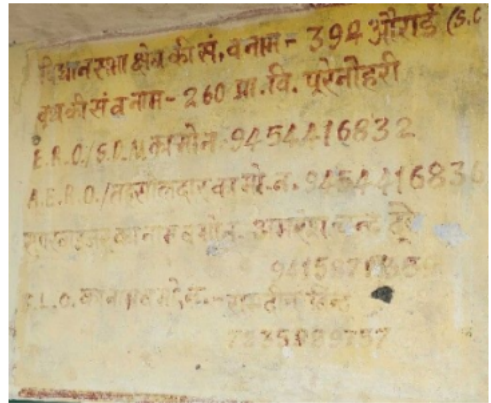 विधान सभा क्षेत्र की सं. व नाम - 394 औराई (S.C
बूथ की सं व नाम - 260 प्रा. वि. पूरेनोहरी
E.R.O./S.D.M. का मो.न. 9454416832
A.E.R.O./तहसीलदार का मो.न. 9454416836
सुपरवाइजर का नाम व मो.न. अमरेश चन्द्र दूबे
B.L.O. का नाम व मो.न.-